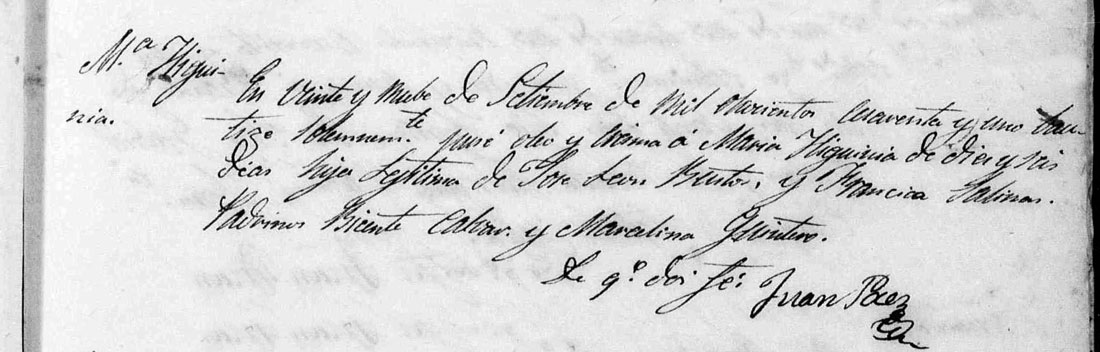 M.ª Higui-
nia.
En Veinte y nuebe de Setiembre de mil ochocientos cuarenta y uno bau-
tizé solemnem.te puse oleo y crisma á Maria Higuinia de diez y seis
dias hija legitima de Jose Leon Bustos, y Francisca Salinas.
Padrinos Bicente y Marcelina Quintero.
De q.e doi fé: Juan Paez